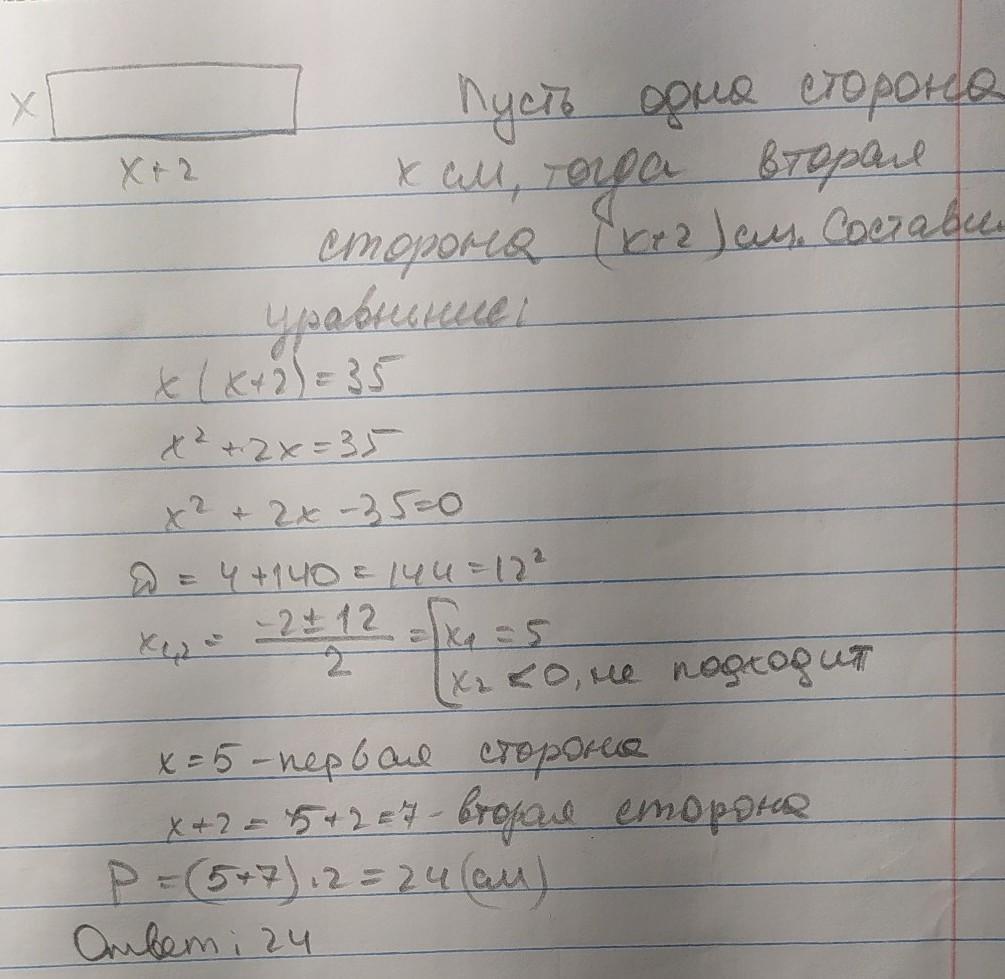 x
x+2
Пусть одна сторона
x см, тогда вторая
сторона (x+2) см. Состави
уравнение:
x(x+2)=35
x²+2x=35
x²+2x-35=0
D=4+140=144=12²
x₁,₂ = (-2±12)/2 = [x₁=5
x₂<0, не подходит
x=5-первая сторона
x+2=5+2=7-вторая сторона
P=(5+7)·2=24(см)
Ответ: 24